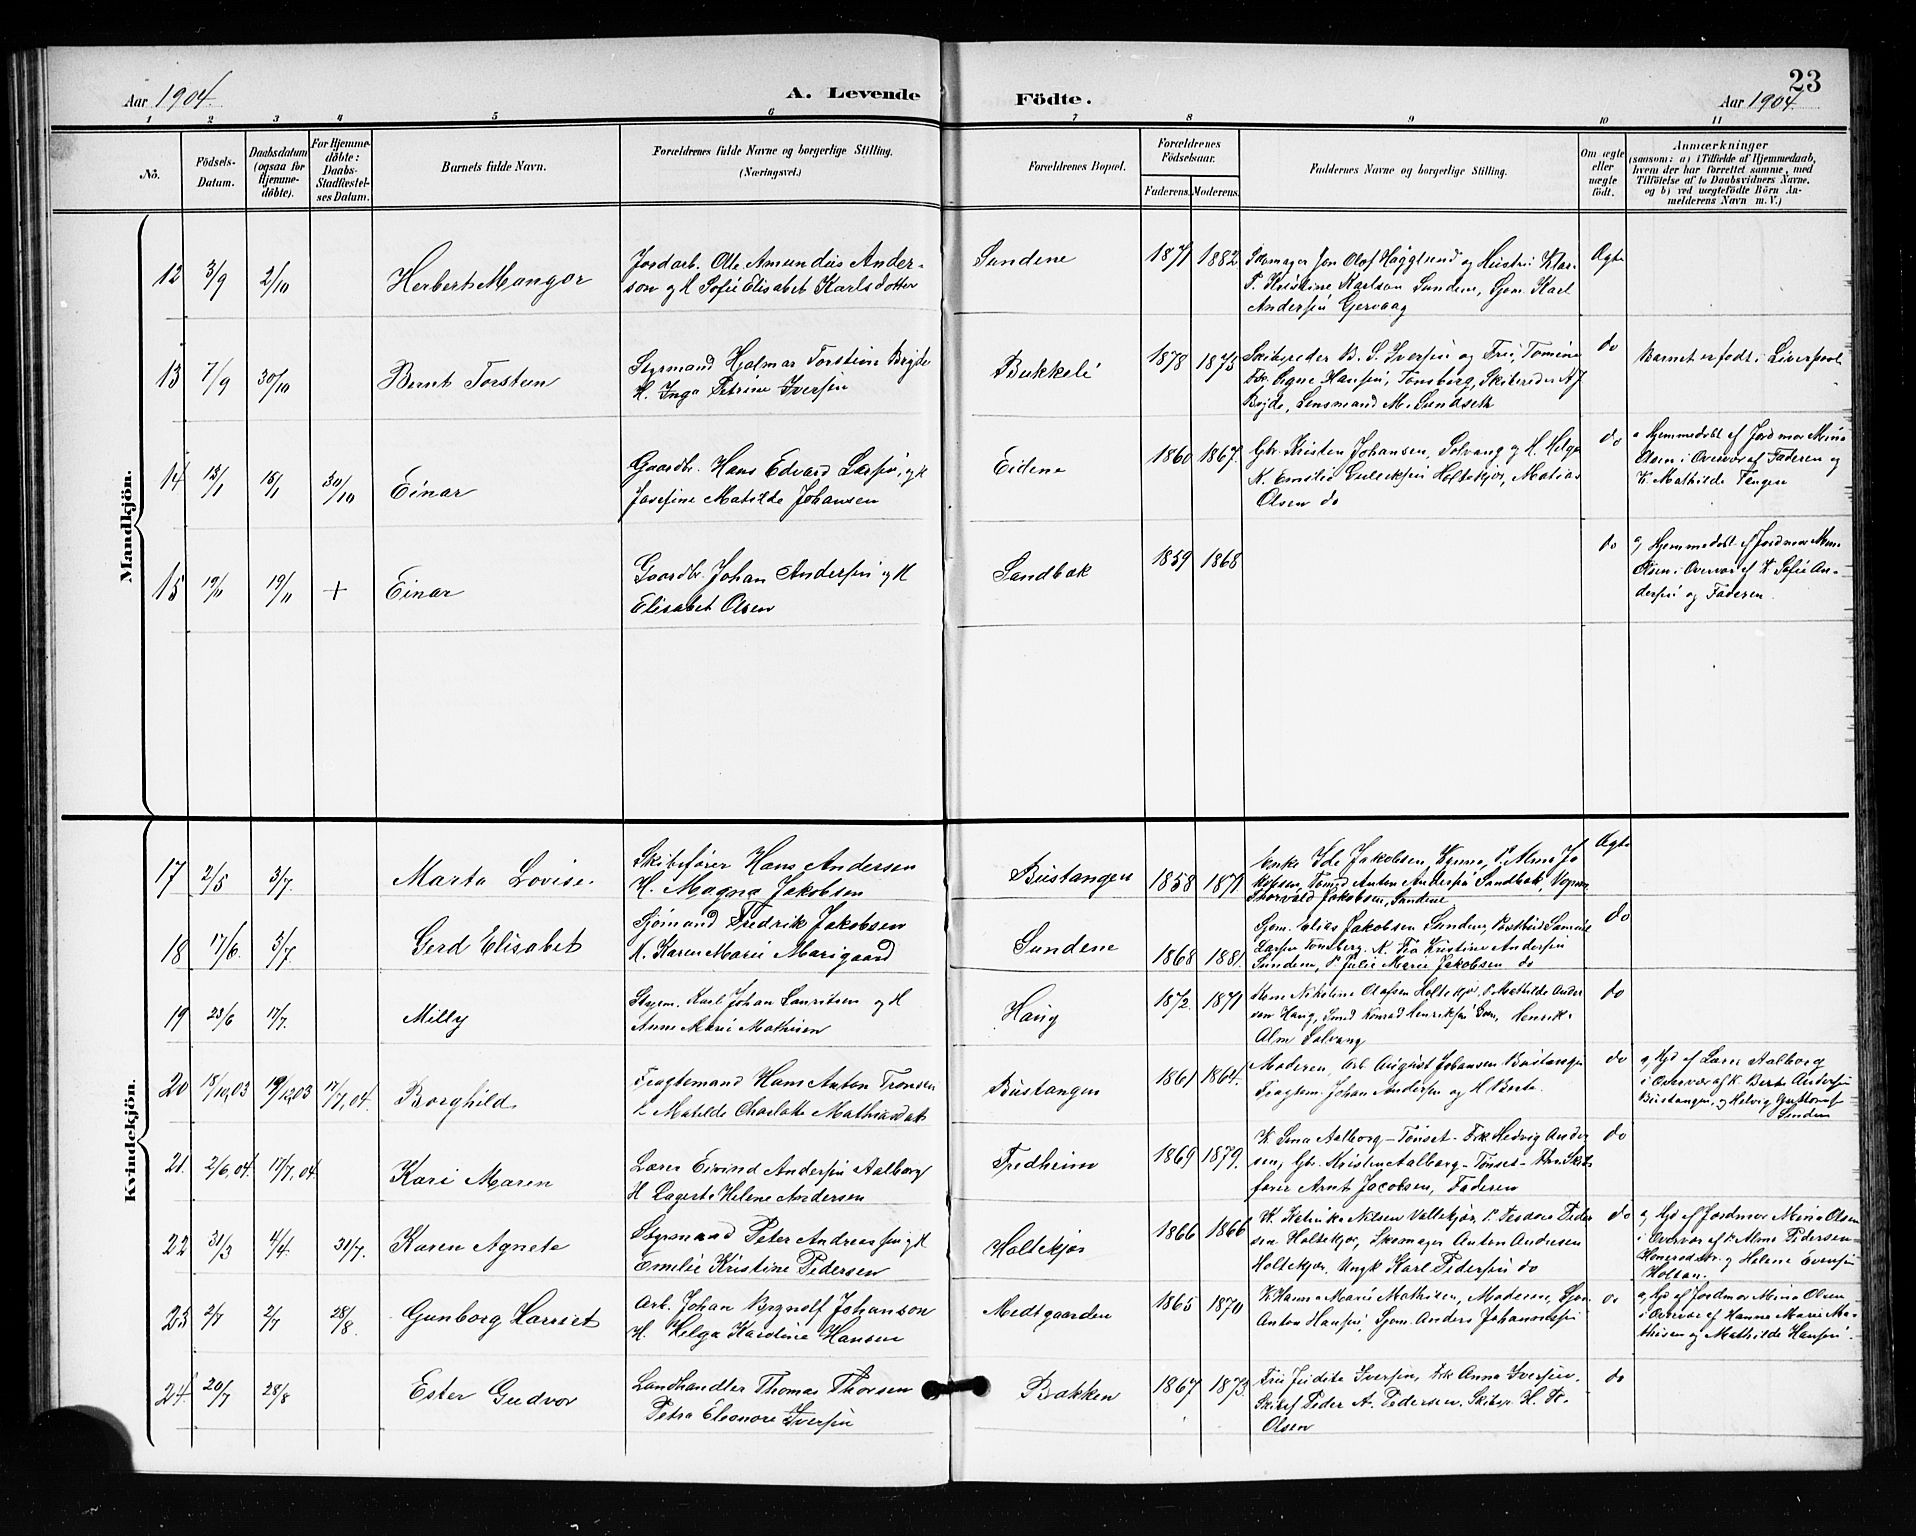 23
Aar 1904.
A. Levende
Födte.
Aar 1904.
1 2 3 4 5 6 7 8 9 10 11
No.
Födsels-
Datum.
Daabsdatum
(ogsaa for
Hjemme-
döbte).
For Hjemme-
döbte:
Daabs-
Stadfæstel-
ses Datum.
Barnets fulde Navn.
Forældrenes fulde Navne og borgerlige Stilling.
(Næringsvei.)
Forældrenes Bopæl.
Forældrenes
Födselsaar.
Faderens. Moderens.
Faddernes Navne og borgerlige Stilling.
Om ægte
eller
uægte
födt.
Anmærkninger
(saasom: a) i Tilfælde af Hjemmedaab,
hvem der har forrettet samme, med
Tilföielse af to Daabsvidners Navne.
og b) ved uægtefödte Börn An-
melderens Navn m. V.)
Mandkjön.
12 3/9 2/10 Herbert Mangor
Jordarb. Ole Amandus Ander-
son og H Sofie Elisabet Karlsdotter
Sundene 1871 1882
Skomager Jon Olof Hägglund og Hustru Klar-
P. Kristine Karlson Sundene, Sjøm. Karl
Andersen Gjervaag
Ægte
13 7/9 30/10 Bernt Torstein
Styrmand Hjalmar Torstein Bryde
H. Inga Petrine Iversen
Bukkeli 1878 1875
Skibsreder B. S. Iversen og Frue Tomine
Frk. Signe Hansen, Tønsberg, Skibsreder A J
Bryde, Lensmand M. Sundseth
do
Barnet er født i Liverpool
14 13/1 15/1 30/10 Einar
Gaardbr. Hans Edvard Larsen, og H
Josefine Matilde Johansen
Eidene 1860 1867.
Gbr. Kristen Johansen, Solvang og H. Helga
K. Emilie Gulliksen Holtekjær, Matias
Olsen do
do
a Hjemmedøbt af Jordmor Mina
Olsen i Overvær af Faderen og
K. Mathilde Tangen
15 19/11 19/11 + Einar
Gaardbr. Johan Andersen og H
Elisabet Olsen
Sandbæk 1859 1868
do
a, Hjemmedøbt af Jordmor Mina
Olsen i Overvær af K Sofie An-
dersen og Faderen.
Kvindekjön.
17 2/5 3/7. Marta Lovise.
Skibsfører Hans Andersen
H. Magna Jakobsen
Bustangen 1858 1871
Enke Ide Jakobsen, P. Alma Ja
kobsen, Tømd Anton Andersen Sandbæk,
Thorvald Jakobsen, Sundene
Ægte
18 17/6. 3/7. Gerd Elisabet
Sjømand Fredrik Jakobsen
H. Karen Marie Marigaard
Sundene 1868 1881.
Sjøm. Elias Jakobsen Sundene Samuel
Larsen Tønsberg. K. Fia Kristine Andersen
Sundene, P Julie Marie Jakobsen do
do
19 23/6 17/7. Milly
Styrm. Karl Johan Lauritsen og H
Anne Marie Mathisen
Haug 1872. 1871
Kone Nikoline Olafsen Holtekjær, P. Mathilde Ander
sen Haug, Smed Konrad Henriksen Henrik
Alm Solvang
do
20 18/10,03 19/12,03 17/7,04. Borghild
Fragtemand Hans Anton Tronsen
& Matilde Charlotte Mathiasdatt.
Bustangen 1861 1864.
Moderen, Arb. August Johansen Bustangen
Fragtem. Johan Andersen og H Berte.
do
a, Hjd af Lærer Aalborg
i Overvær af K. Berte Andersen
Bustangen, og Helvig Gustavsen
Sundene
21. 2/6,04. 17/7,04. Kari Maren
Lærer Eivind Andersen Aalborg
H Lagerte Helene Andersen
Fredheim 1869 1879.
K. Sina Aalborg – Tønset – Frk Hedvig Ander
sen, Gbr. Kristen Aalborg – Tønset – Skibs
fører Arnt Jacobsen, Faderen
do
22 31/3 4/4. 31/7. Karen Agnete
Styrmand Peter Andreassen og H
Emilie Kristine Pedersen
Holtekjær 1866 1866
K. Katrike Nilsen Vallekjær, P. Peder
sen Holtekjær, Skomager Anton Andersen
Holtekjær. Ungk Karl Pedersen do
do
a, Hjd af Jordmor Mina Olsen
i Overvær af K. Alma Pedersen
og Helene Evensen
Holtan.
23 2/7 2/7 28/8. Gunborg Harriet
Arb. Johan Brynolf Johanson
H. Helga Karoline Hansen
Medtgaarden 1865 1870
K. Hanne Marie Mathisen, Moderen, Sjøm
Anton Hansen, Sjøm. Anders Johannesen
do
a, Hjd af Jordmor Mina Olsen
i Overvær af Hanne Marie Ma-
thisen og Mathilde Hansen.
24. 20/7 28/8 Ester Gudvor
Landhandler Thomas Thorsen
Petra Eleonore Iversen
Bakken 1867 1873.
Frue Judita Iversen, Frk Anna Iversen.
Skibsf Peder A. Pedersen, Skibsr. H. St.
Olsen
do